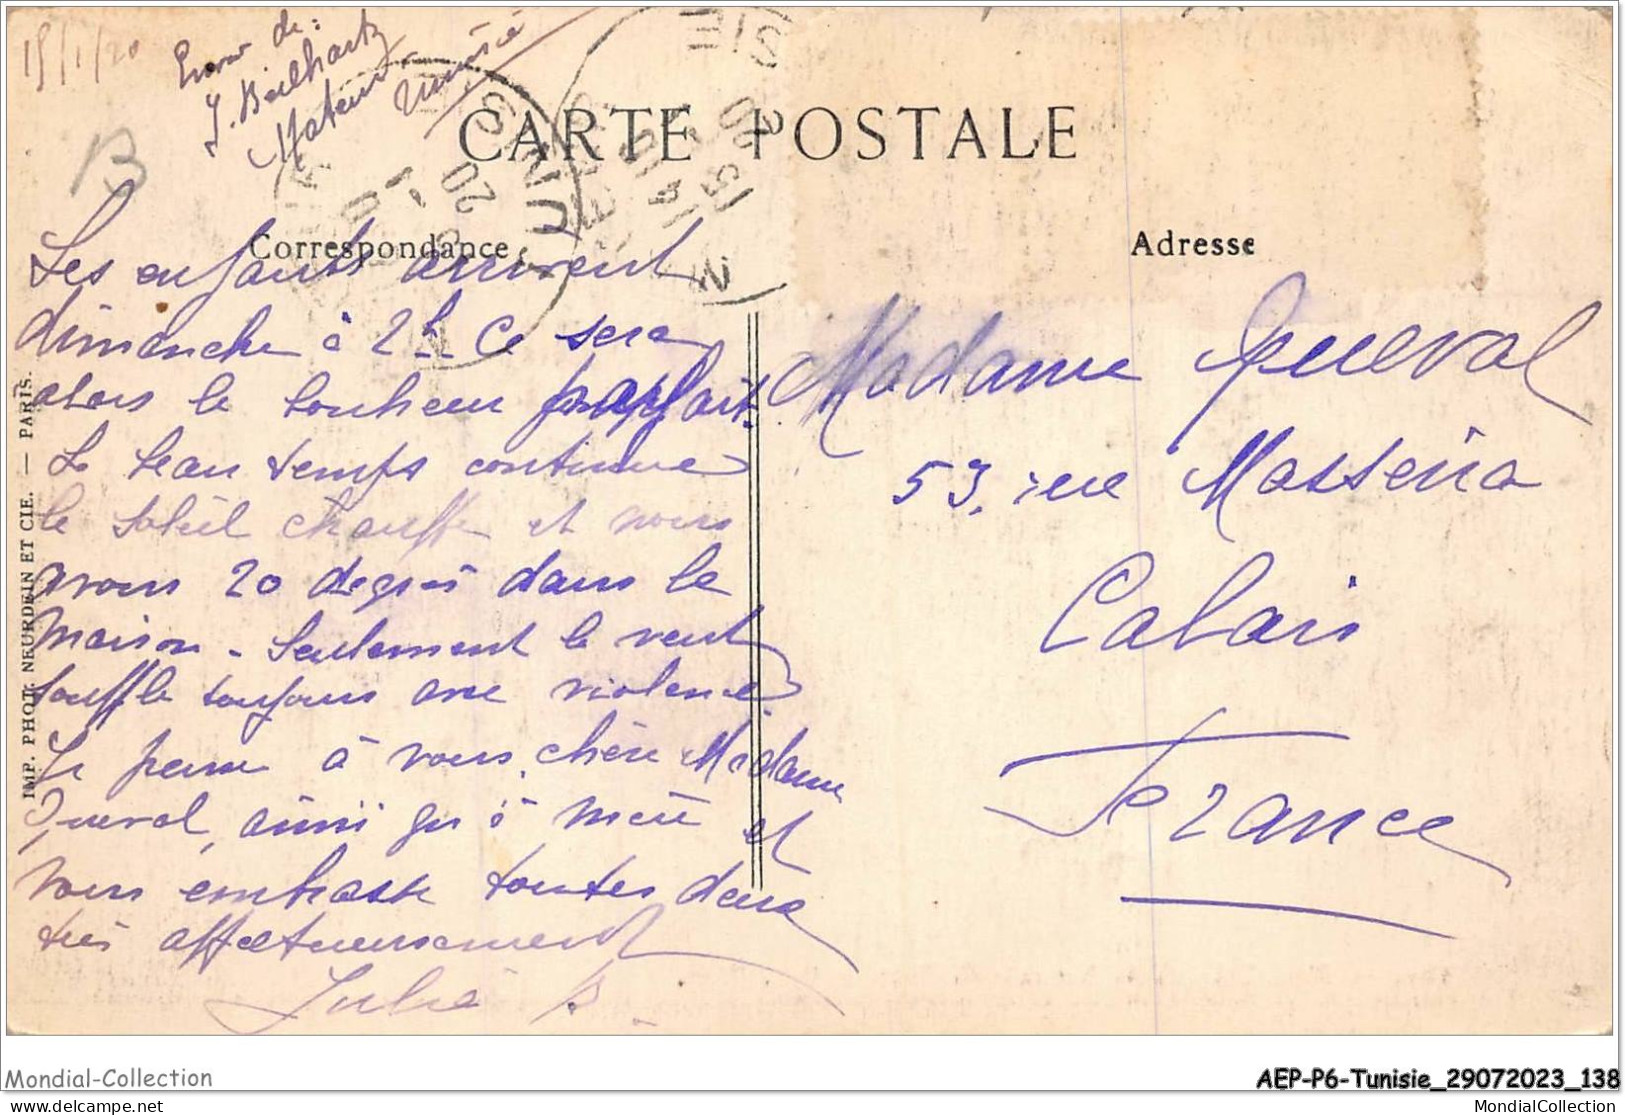 15/1/20
Envoi de :
J. Beilhartz
Mateur
Tunisie
B
CARTE POSTALE
Correspondance
Adresse
Les enfants arrivent
dimanche à 2h. Ce sera
alors le bonheur parfait.
Le beau temps continue
le soleil chauffe et nous
avons 20 degrés dans la
maison - Seulement le vent
souffle toujours avec violence.
Je pense à vous, chère Madame
Queval, ainsi qu'à mère et
vous embrasse toutes deux
très affectueusement
Julie B.
Madame Queval
53, rue Masséna
Calais
France
IMP. PHOT. NEURDEIN ET CIE. — PARIS.
Mondial-Collection
AEP-P6-Tunisie_29072023_138
www.delcampe.net
MondialCollection